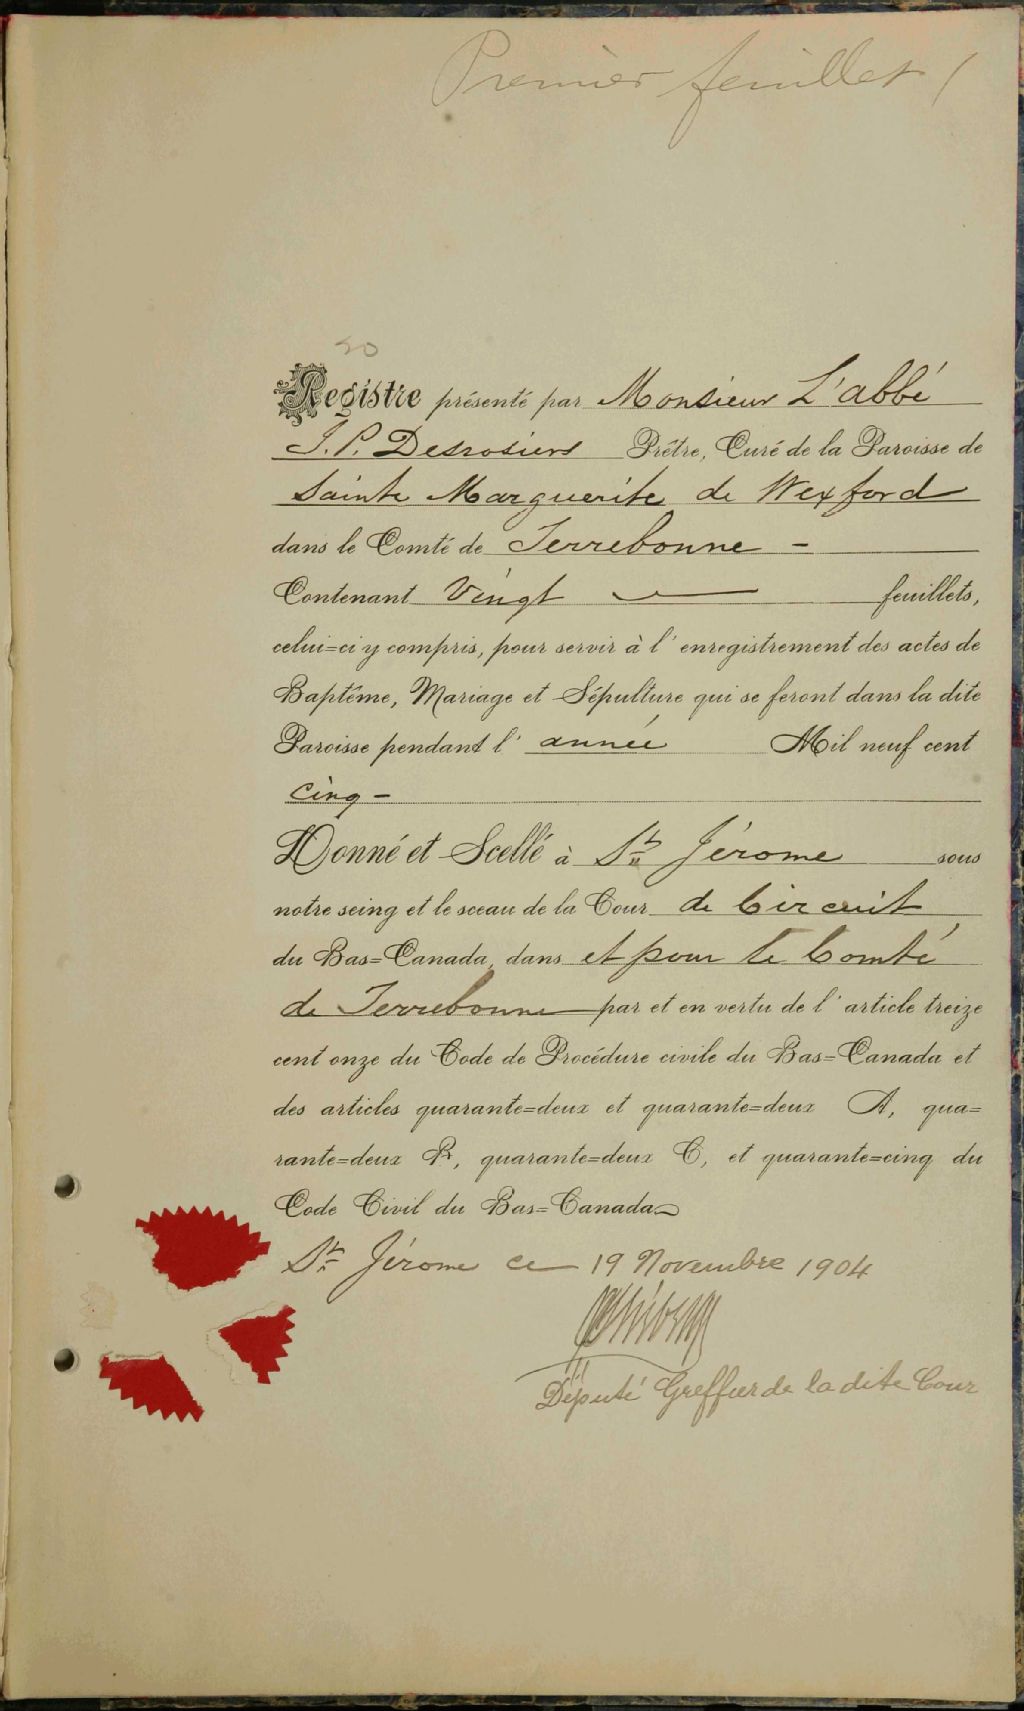 Premier feuillet 1
20
Registre présenté par Monsieur L'abbé
J. P. Desrosiers Prêtre, Curé de la Paroisse de
Sainte Marguerite de Wexford
dans le Comté de Terrebonne -
Contenant Vingt feuillets,
celui=ci y compris, pour servir à l'enregistrement des actes de
Baptême, Mariage et Sépulture qui se feront dans la dite
Paroisse pendant l'année Mil neuf cent
cinq -
Donné et Scellé à St Jérome sous
notre seing et le sceau de la Cour de Circuit
du Bas=Canada, dans et pour le Comté
de Terrebonne par et en vertu de l'article treize
cent onze du Code de Procédure civile du Bas=Canada et
des articles quarante=deux et quarante=deux A, qua=
rante=deux B, quarante=deux C, et quarante=cinq du
Code Civil du Bas=Canada
St Jérome ce 19 Novembre 1904
Député Greffier de la dite Cour